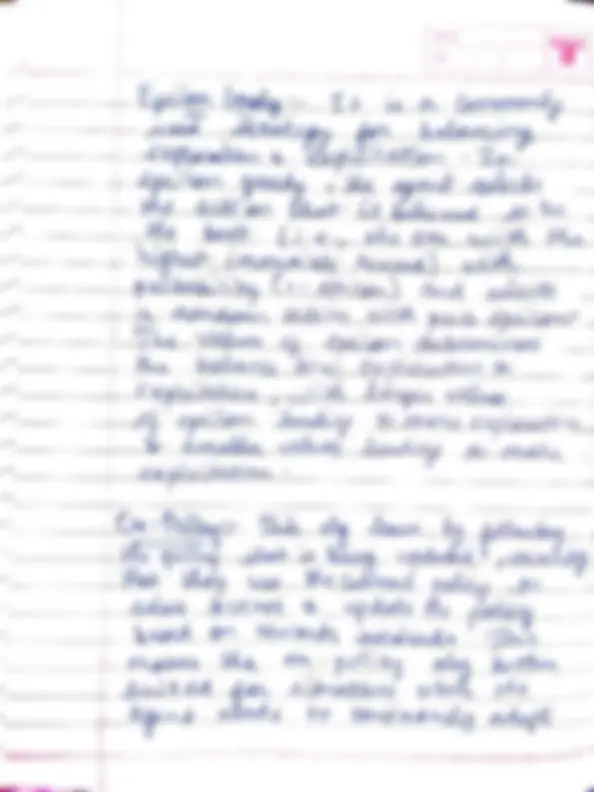 Epsilon Greedy :- It is a commonly
used strategy for balancing
exploration & exploitation. In
epsilon greedy, the agent selects
the action that is believed to be
the best (i.e., the one with the
highest reward) with
probability (1-epsilon) and selects
a random action with epsilon
The value of epsilon determines
the balance exploration &
exploitation, with larger values
of epsilon leading to more exploration
& smaller values leading to more
exploitation.
On Policy :- This alg learn by following
the policy that is being updated, meaning
that they use the current policy to
select actions & update the policy
based on rewards received. This
makes the on policy alg better
suited for situations where the
agent needs to continuously adapt